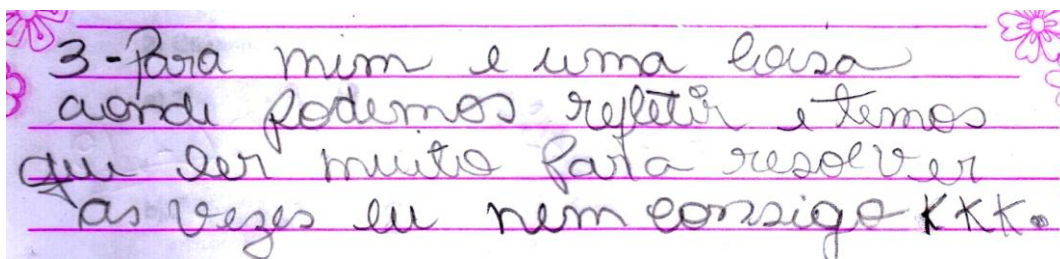 3-Para mim e uma coisa
aonde podemos refletir e temos
que ler muito para resolver
as vezes eu nem consigo KKK.